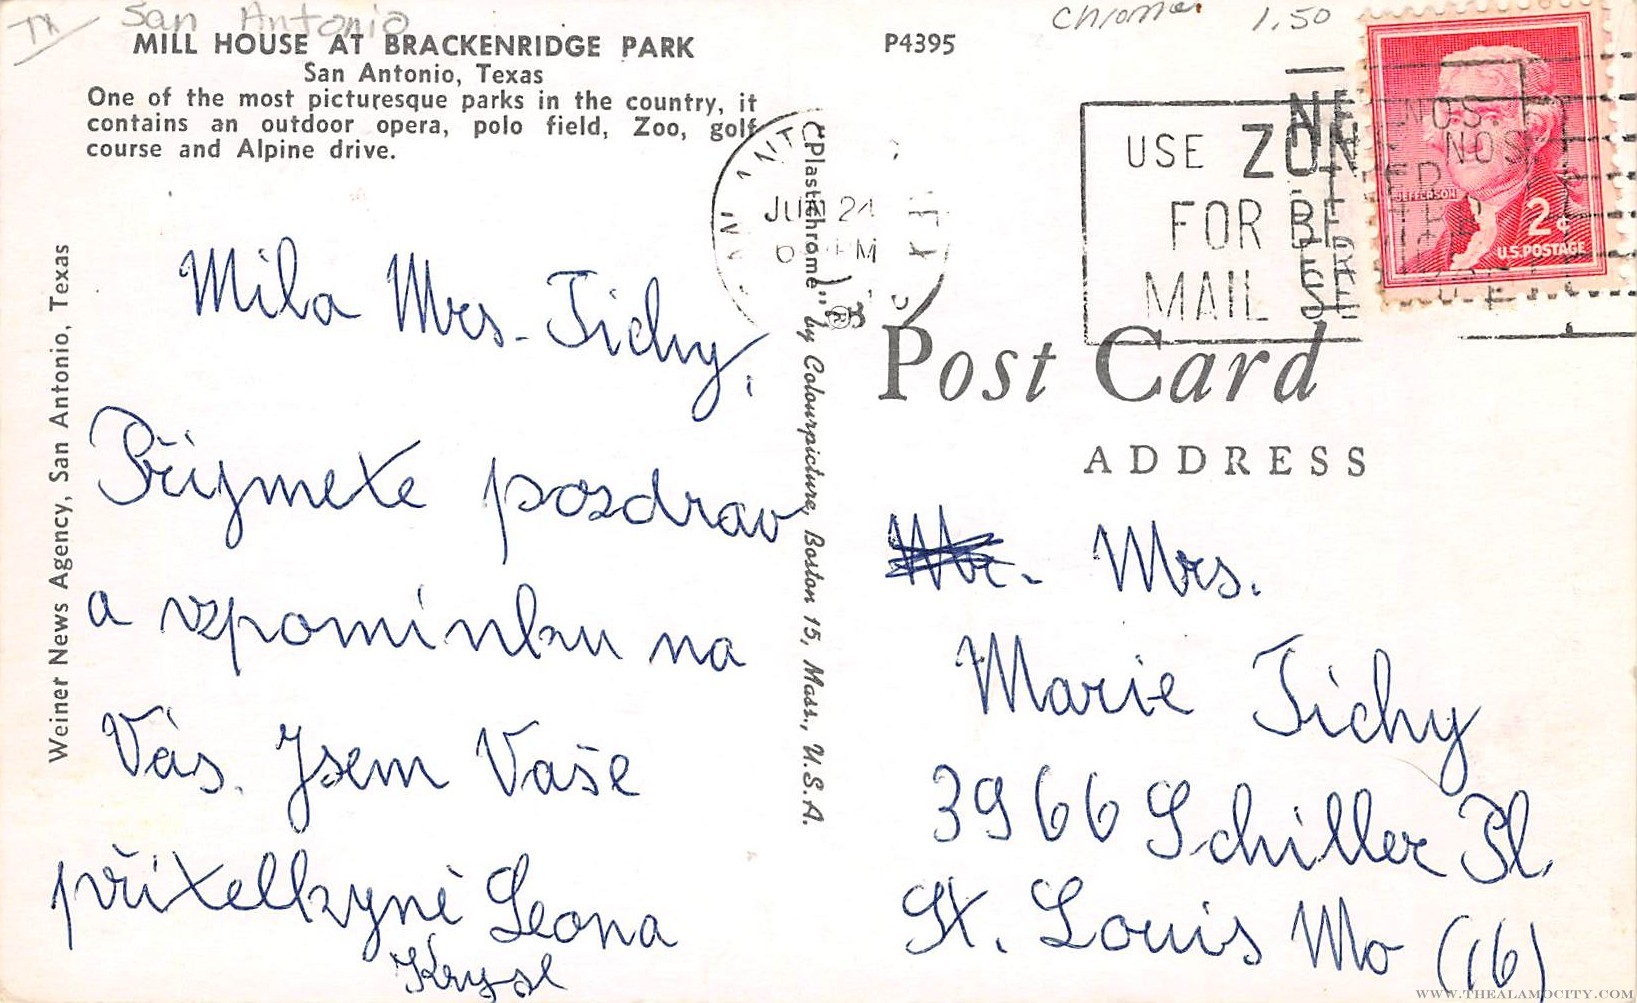 TX San Antonio
Chrome 1.50
MILL HOUSE AT BRACKENRIDGE PARK
San Antonio, Texas
One of the most picturesque parks in the country, it
contains an outdoor opera, polo field, Zoo, golf
course and Alpine drive.
P4395
Weiner News Agency, San Antonio, Texas
"Plastichrome" ® by Colourpicture, Boston 15, Mass., U.S.A.
24
USE ZON NOS.
FOR BE
MAIL SE
JEFFERSON
2¢
U.S. POSTAGE
Post Card
ADDRESS
Mila Mrs. Tichy,
Přijmete pozdrav
a vzpomínku na
Vás. Jsem Vaše
přitelkyně Leona
Krysl
Mr. Mrs.
Marie Tichy
3966 Schiller Pl.
St. Louis Mo (16)
WWW.THEALAMOCITY.COM